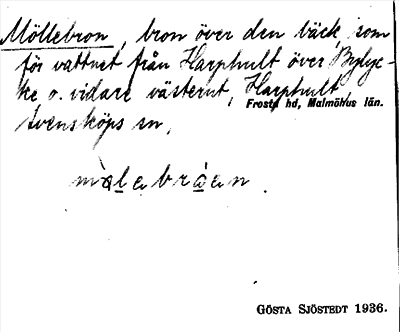 Möllebron, bron över den bäck, som
för vattnet från Harphult över Bylyc-
ke, o. vidare västerut, Harphult,
Frosta hd, Malmöhus län.
Svensköps sn,
GÖSTA SJÖSTEDT 1936.